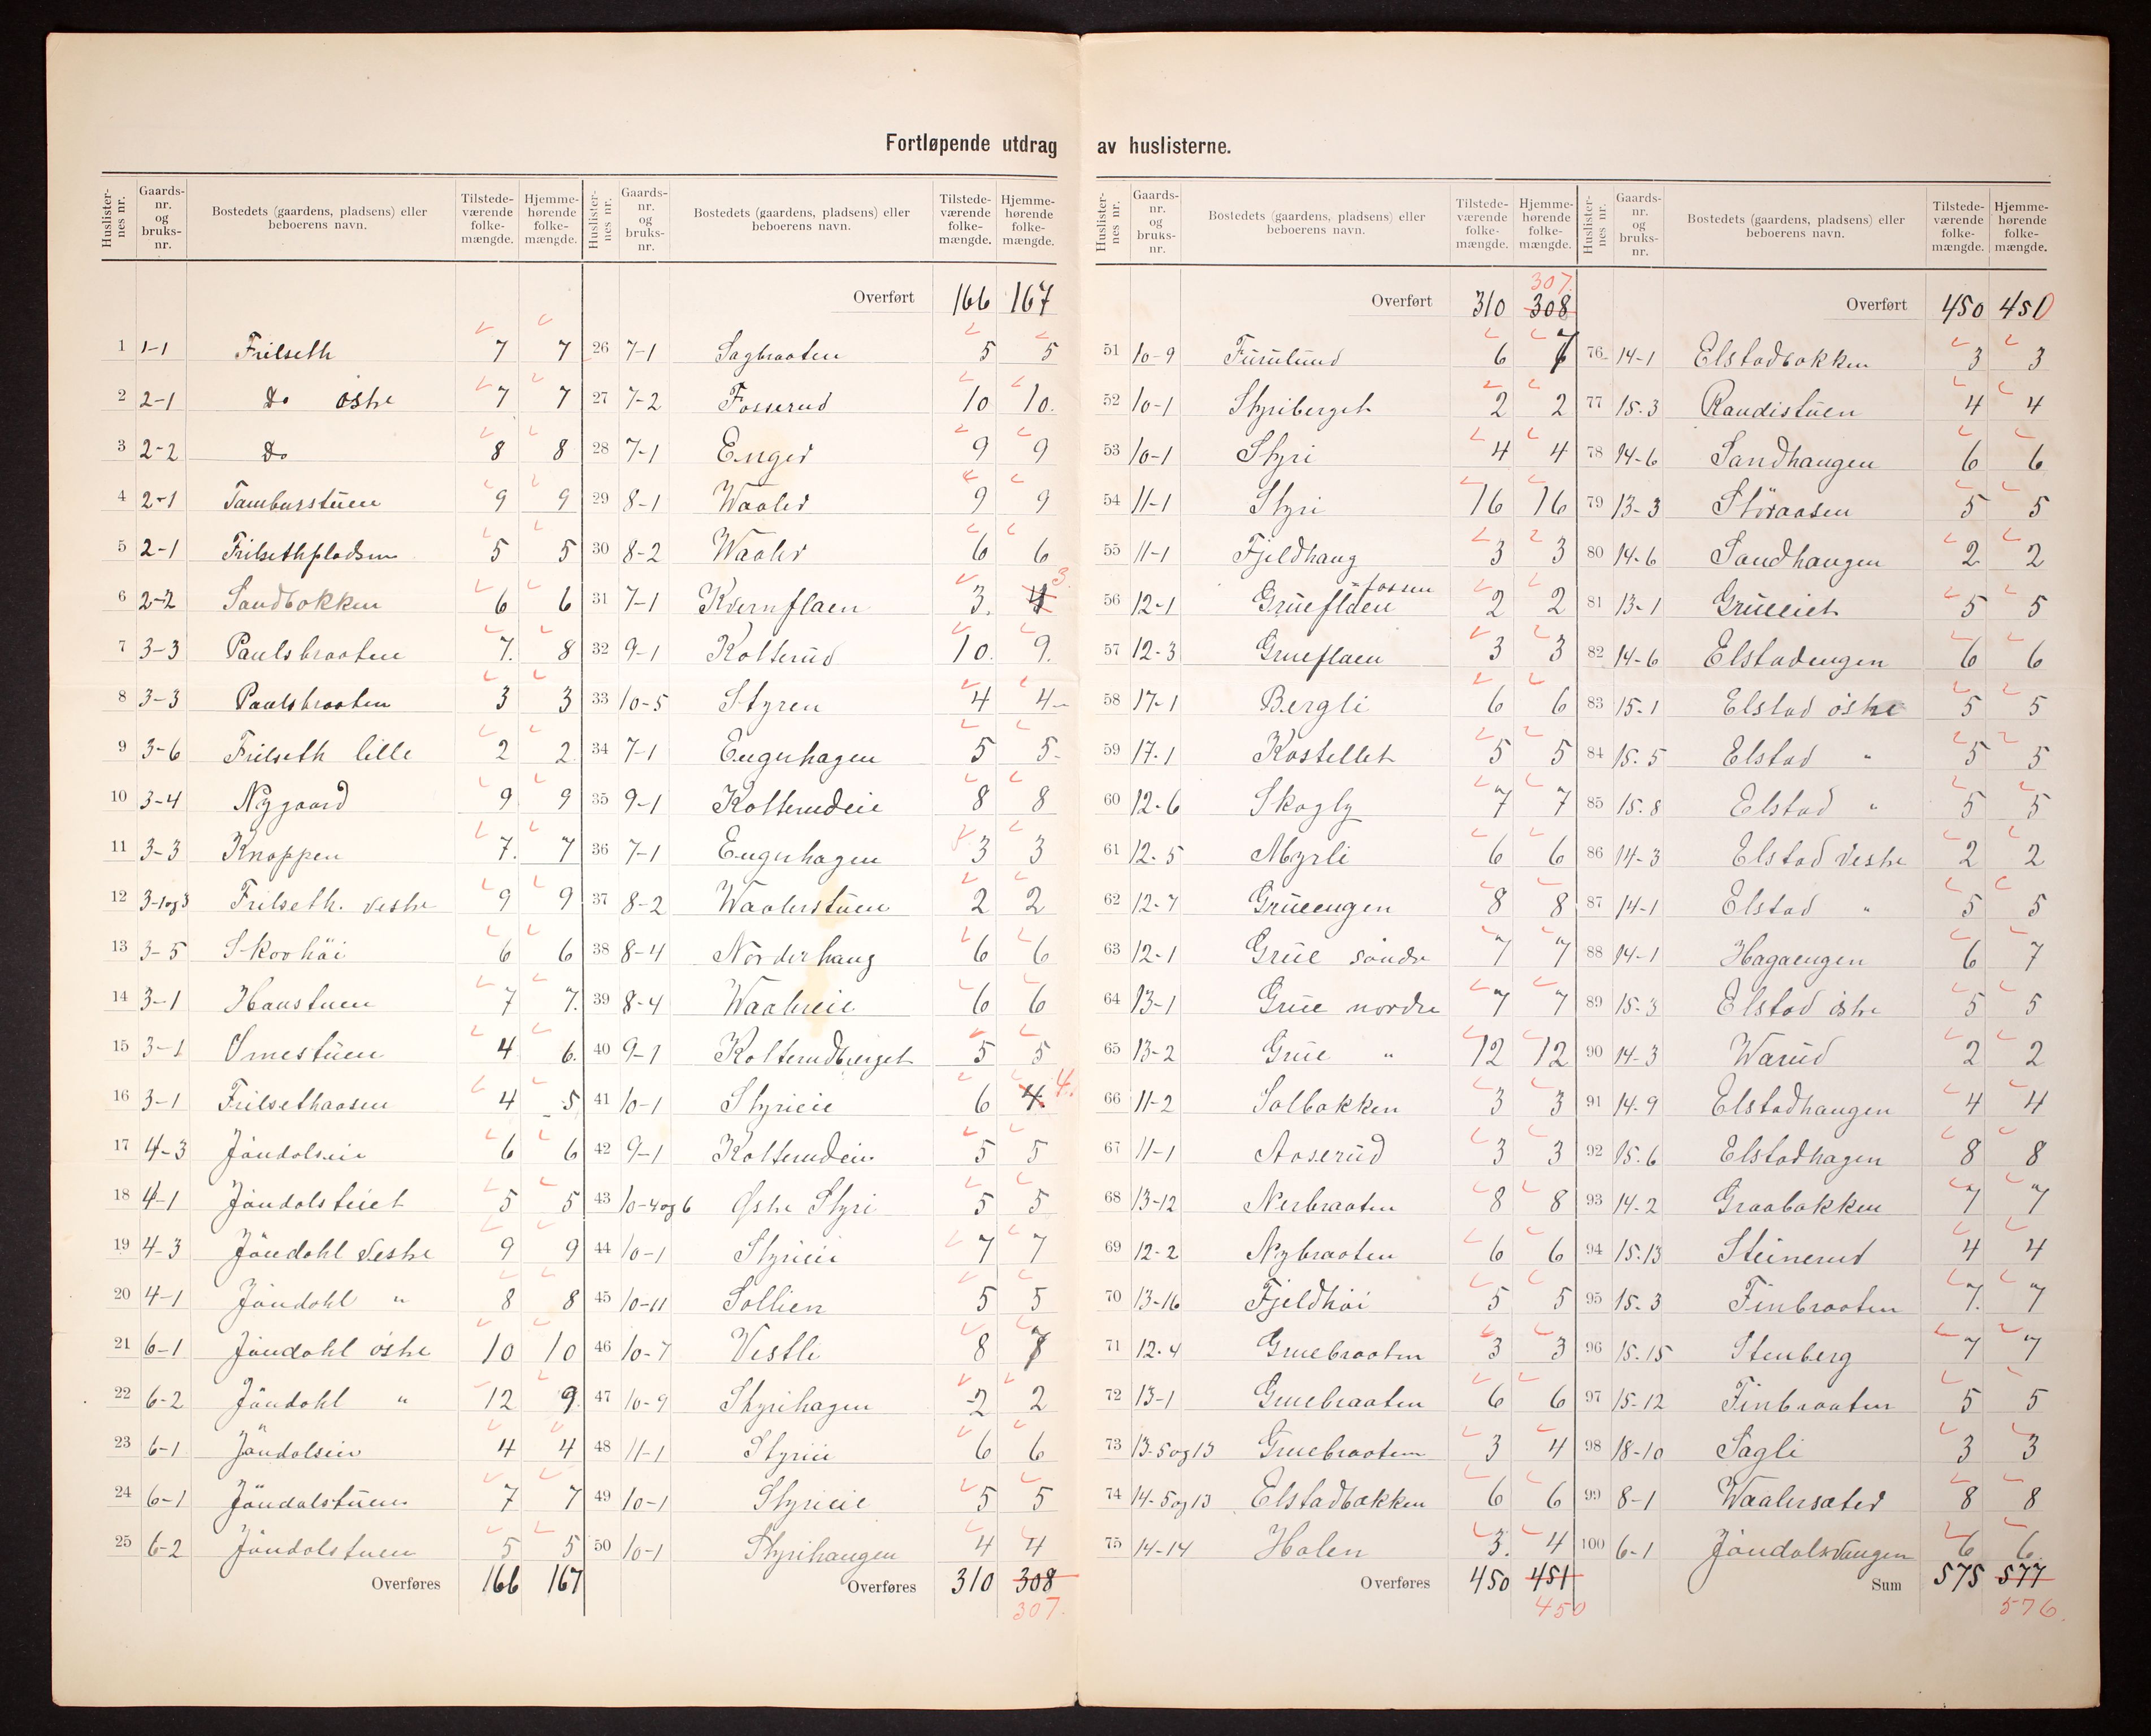 Fortløpende utdrag av huslisterne.
Huslister-nes nr. Gaards-nr. og bruks-nr. Bostedets (gaardens, pladsens) eller beboerens navn. Tilstede-værende folke-mængde. Hjemme-hørende folke-mængde.
1 1-1 Frilseth 7 7
2 2-1 do østre 7 7
3 2-2 do 8 8
4 2-1 Tamburstuen 9 9
5 2-1 Frilsethpladsen 5 5
6 2-2 Sandbakken 6 6
7 3-3 Paulsbraaten 7. 8
8 3-3 Paulsbraaten 3 3
9 3-6 Frilseth lille 2 2
10 3-4 Nygaard 9 9
11 3-3 Knappen 7. 7
12 3-1og3 Frilseth. vestre 9 9
13 3-5 Skovhöi 6 6
14 3-1 Haustuen 7 7.
15 3-1 Omestuen 4 6.
16 3-1 Frilsethaasen 4 5
17 4-3 Jöndalseie 6 6
18 4-1 Jöndalseiet 5 5
19 4-3 Jöndahl vestre 9 9
20 4-1 Jöndahl " 8 8
21 6-1 Jöndahl östre 10 10
22 6-2 Jöndahl " 12 9
23 6-1 Jöndalseie 4 4
24 6-1 Jöndalstuen 7 7
25 6-2 Jöndalstuen 5 5
Overføres 166 167
Huslister-nes nr. Gaards-nr. og bruks-nr. Bostedets (gaardens, pladsens) eller beboerens navn. Tilstede-værende folke-mængde. Hjemme-hørende folke-mængde.
Overført 166 167
26 7-1 Sagbraaten 5 5
27 7-2 Fosserud 10 10.
28 7-1 Enger 9 9
29 8-1 Waaler 9 9
30 8-2 Waaler 6 6
31 7-1 Kvernflaen 3. 4 3.
32 9-1 Kolterud 10. 9.
33 10-5 Styren 4 4
34 7-1 Engerhagen 5 5
35 9-1 Kolterudeie 8 8
36 7-1 Engerhagen 3 3
37 8-2 Waalerstuen 2 2
38 8-4 Nörderhaug 6 6
39 8-4 Waalereie 6 6
40 9-1 Kolterudberget 5 5
41 10-1 Styrieie 6 4. 4.
42 9-1 Kolterudeie 5 5
43 10-4og6 Østre Styri 5 5
44 10-1 Styrieie 7 7
45 10-11 Sollien 5 5
46 10-7 Vestli 8 7
47 10-9 Styrihagen 2 2
48 11-1 Styrieie 6 6
49 10-1 Styrieie 5 5
50 10-1 Styrihaugen 4 4
Overføres 310 308
307.
Huslister-nes nr. Gaards-nr. og bruks-nr. Bostedets (gaardens, pladsens) eller beboerens navn. Tilstede-værende folke-mængde. Hjemme-hørende folke-mængde.
307.
Overført 310 308
51 10-9 Furulund 6 7
52 10-1 Styriberget 2 2
53 10-1 Styri 4 4
54 11-1 Styri 16 16
55 11-1 Fjeldhaug 3 3
56 12-1 Grueflaen fossen 2 2
57 12-3 Grueflaen 3 3
58 17-1 Bergli 6 6
59 17-1 Kastellet 5 5
60 12-6 Skogly 7 7
61 12-5 Myrli 6 6
62 12-7 Grueengen 8 8
63 12-1 Grüe söndre 7 7
64 13-1 Grüe nordre 7 7
65 13-2 Grüe " 12 12
66 11-2 Solbakken 3 3
67 11-1 Aaserüd 3 3
68 13-12 Nerbraaten 8 8
69 12-2 Nybraaten 6 6
70 13-16 Fjeldhöi 5 5
71 12-4 Gruebraaten 3 3
72 13-1 Gruebraaten 6 6
73 13-5og13 Gruebraaten 3 4
74 14-5og13 Elstadbakken 6 6
75 14-14 Holen 3. 4
Overføres 450 451
450
Huslister-nes nr. Gaards-nr. og bruks-nr. Bostedets (gaardens, pladsens) eller beboerens navn. Tilstede-værende folke-mængde. Hjemme-hørende folke-mængde.
Overført 450 450
76 14-1 Elstadbakken 3 3
77 15-3 Raudistuen 4 4
78 14-6 Sandhaugen 6 6
79 13-3 Störaasen 5 5
80 14-6 Sandhaugen 2 2
81 13-1 Grüeeiet 5 5
82 14-6 Elstadengen 6 6
83 15-1 Elstad östre 5 5
84 15-5 Elstad " 5 5
85 15-8 Elstad " 5 5
86 14-3 Elstad vestre 2 2
87 14-1 Elstad " 5 5
88 14-1 Hagaengen 6 7
89 15-3 Elstad östre 5 5
90 14-3 Warüd 2 2
91 14-9 Elstadhaugen 4 4
92 15-6 Elstadhagen 8 8
93 14-2 Graabakken 7 7
94 15-13 Steinerud 4 4
95 15-3 Finbraaten 7. 7
96 15-15 Stenberg 7 7
97 15-12 Finbraaten 5 5
98 18-10 Sagli 3 3
99 8-1 Waalersæter 8 8
100 6-1 Jöndalsvangen 6 6.
Sum 575 577
576.